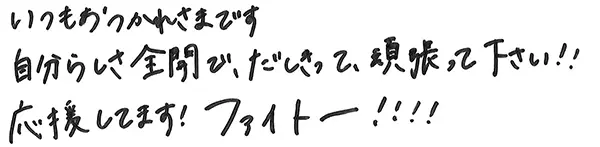 いつもおつかれさまです
自分らしさ全開で、だしきって、頑張って下さい!!
応援してます! ファイトー!!!!